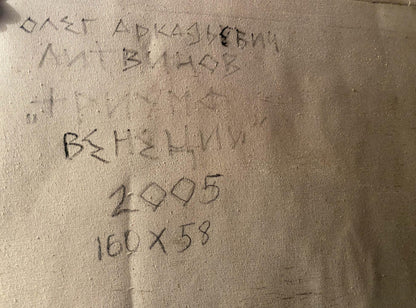 ОЛЕГ АРКАДЬЕВИЧ
ЛИТВИНОВ
„ТРИУМФ
ВЕНЕЦИИ“
2005
160 X 58